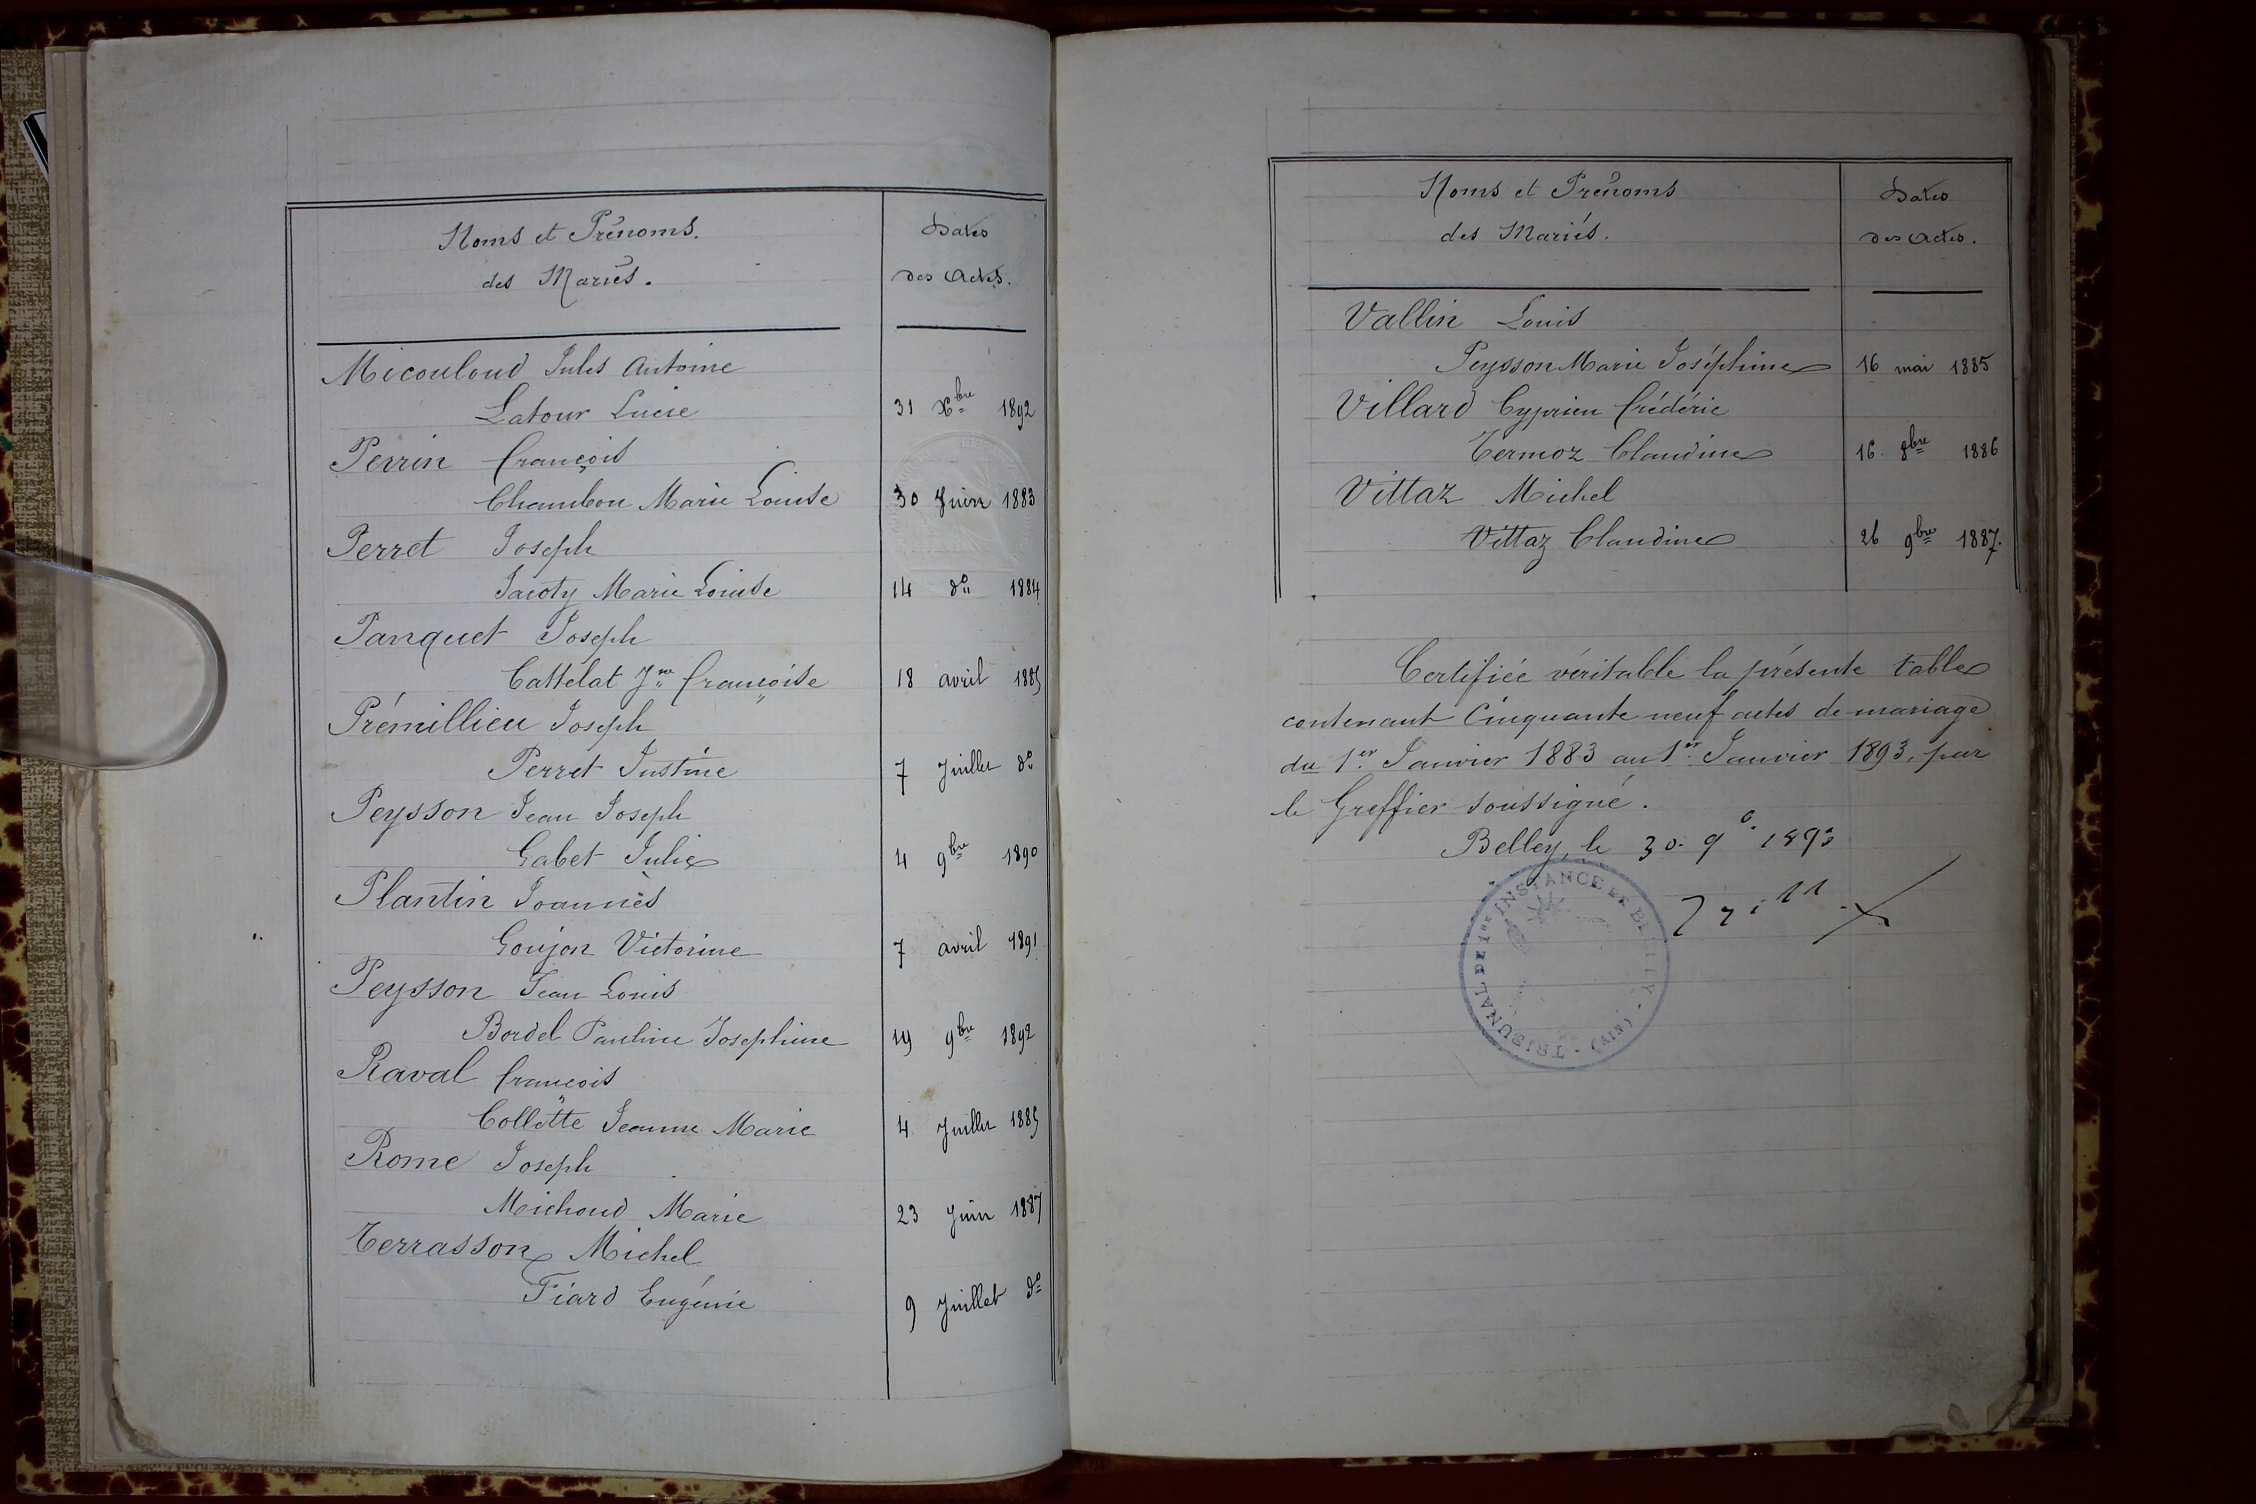 Noms et Prénoms.
des Mariés.
Dates
des Actes.
Micouloud Jules Antoine
Latour Lucie 31 Xbre 1892
Perrin François
Chambon Marie Louise 30 Juin 1883
Perret Joseph
Jacoty Marie Louise 14 do 1884
Panquet Joseph
Cattelat Jne Françoise 18 avril 1885
Prémillieu Joseph
Perret Justine 7 Juillet do
Peysson Jean Joseph
Gabet Julie 4 9bre 1890
Plantin Joannès
Goujon Victorine 7 avril 1891
Peysson Jean Louis
Bordel Pauline Josephine 19 9bre 1892
Raval François
Collette Jeanne Marie 4 Juillet 1885
Rome Joseph
Michoud Marie 23 Juin 1887
Terrasson Michel
Fiard Eugénie 9 Juillet do
Noms et Prénoms
des Mariés.
Dates
des Actes.
Vallin Louis
Peysson Marie Joséphine 16 mai 1885
Villard Cyprien Frédéric
Termoz Claudine 16 8bre 1886
Vittaz Michel
Vittaz Claudine 26 9bre 1887.
Certifiée véritable la présente table
contenant Cinquante neuf actes de mariage
du 1er Janvier 1883 au 1er Janvier 1893, par
le Greffier soussigné.
Belley, le 30. 9b. 1893
TRIBUNAL DE 1ERE INSTANCE DE BELLEY - (AIN) -